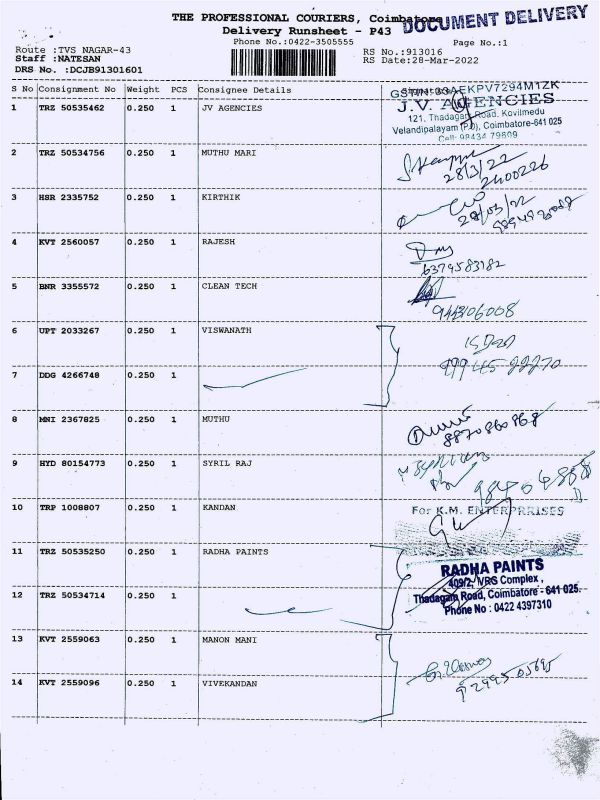 THE PROFESSIONAL COURIERS, Coimbatore
DOCUMENT DELIVERY
Delivery Runsheet - P43
Phone No.:0422-3505555
Page No.:1
Route :TVS NAGAR-43
RS No.:913016
Staff :NATESAN
RS Date:28-Mar-2022
DRS No. :DCJB91301601
S No Consignment No Weight PCS Consignee Details
GSTIN:33AEKPV7294M1ZK
1 TRZ 50535462 0.250 1 JV AGENCIES
J.V. AGENCIES
121, Thadagam Road, Kovilmedu
Velandipalayam (P.O), Coimbatore-641 025
Cell: 98434 79609
2 TRZ 50534756 0.250 1 MUTHU MARI
28/3/22
2400226
3 HSR 2335752 0.250 1 KIRTHIK
28/03/22
4 KVT 2560057 0.250 1 RAJESH
6379583182
5 BNR 3355572 0.250 1 CLEAN TECH
9443106008
6 UPT 2033267 0.250 1 VISWANATH
99945 22270
7 DDG 4266748 0.250 1
8 MNI 2367825 0.250 1 MUTHU
8870860868
9 HYD 80154773 0.250 1 SYRIL RAJ
10 TRP 1008807 0.250 1 KANDAN
For K.M. ENTERPRRISES
11 TRZ 50535250 0.250 1 RADHA PAINTS
RADHA PAINTS
409/2, VRS Complex,
Thadagam Road, Coimbatore - 641 025.
Phone No : 0422 4397310
12 TRZ 50534714 0.250 1
13 KVT 2559063 0.250 1 MANON MANI
14 KVT 2559096 0.250 1 VIVEKANDAN